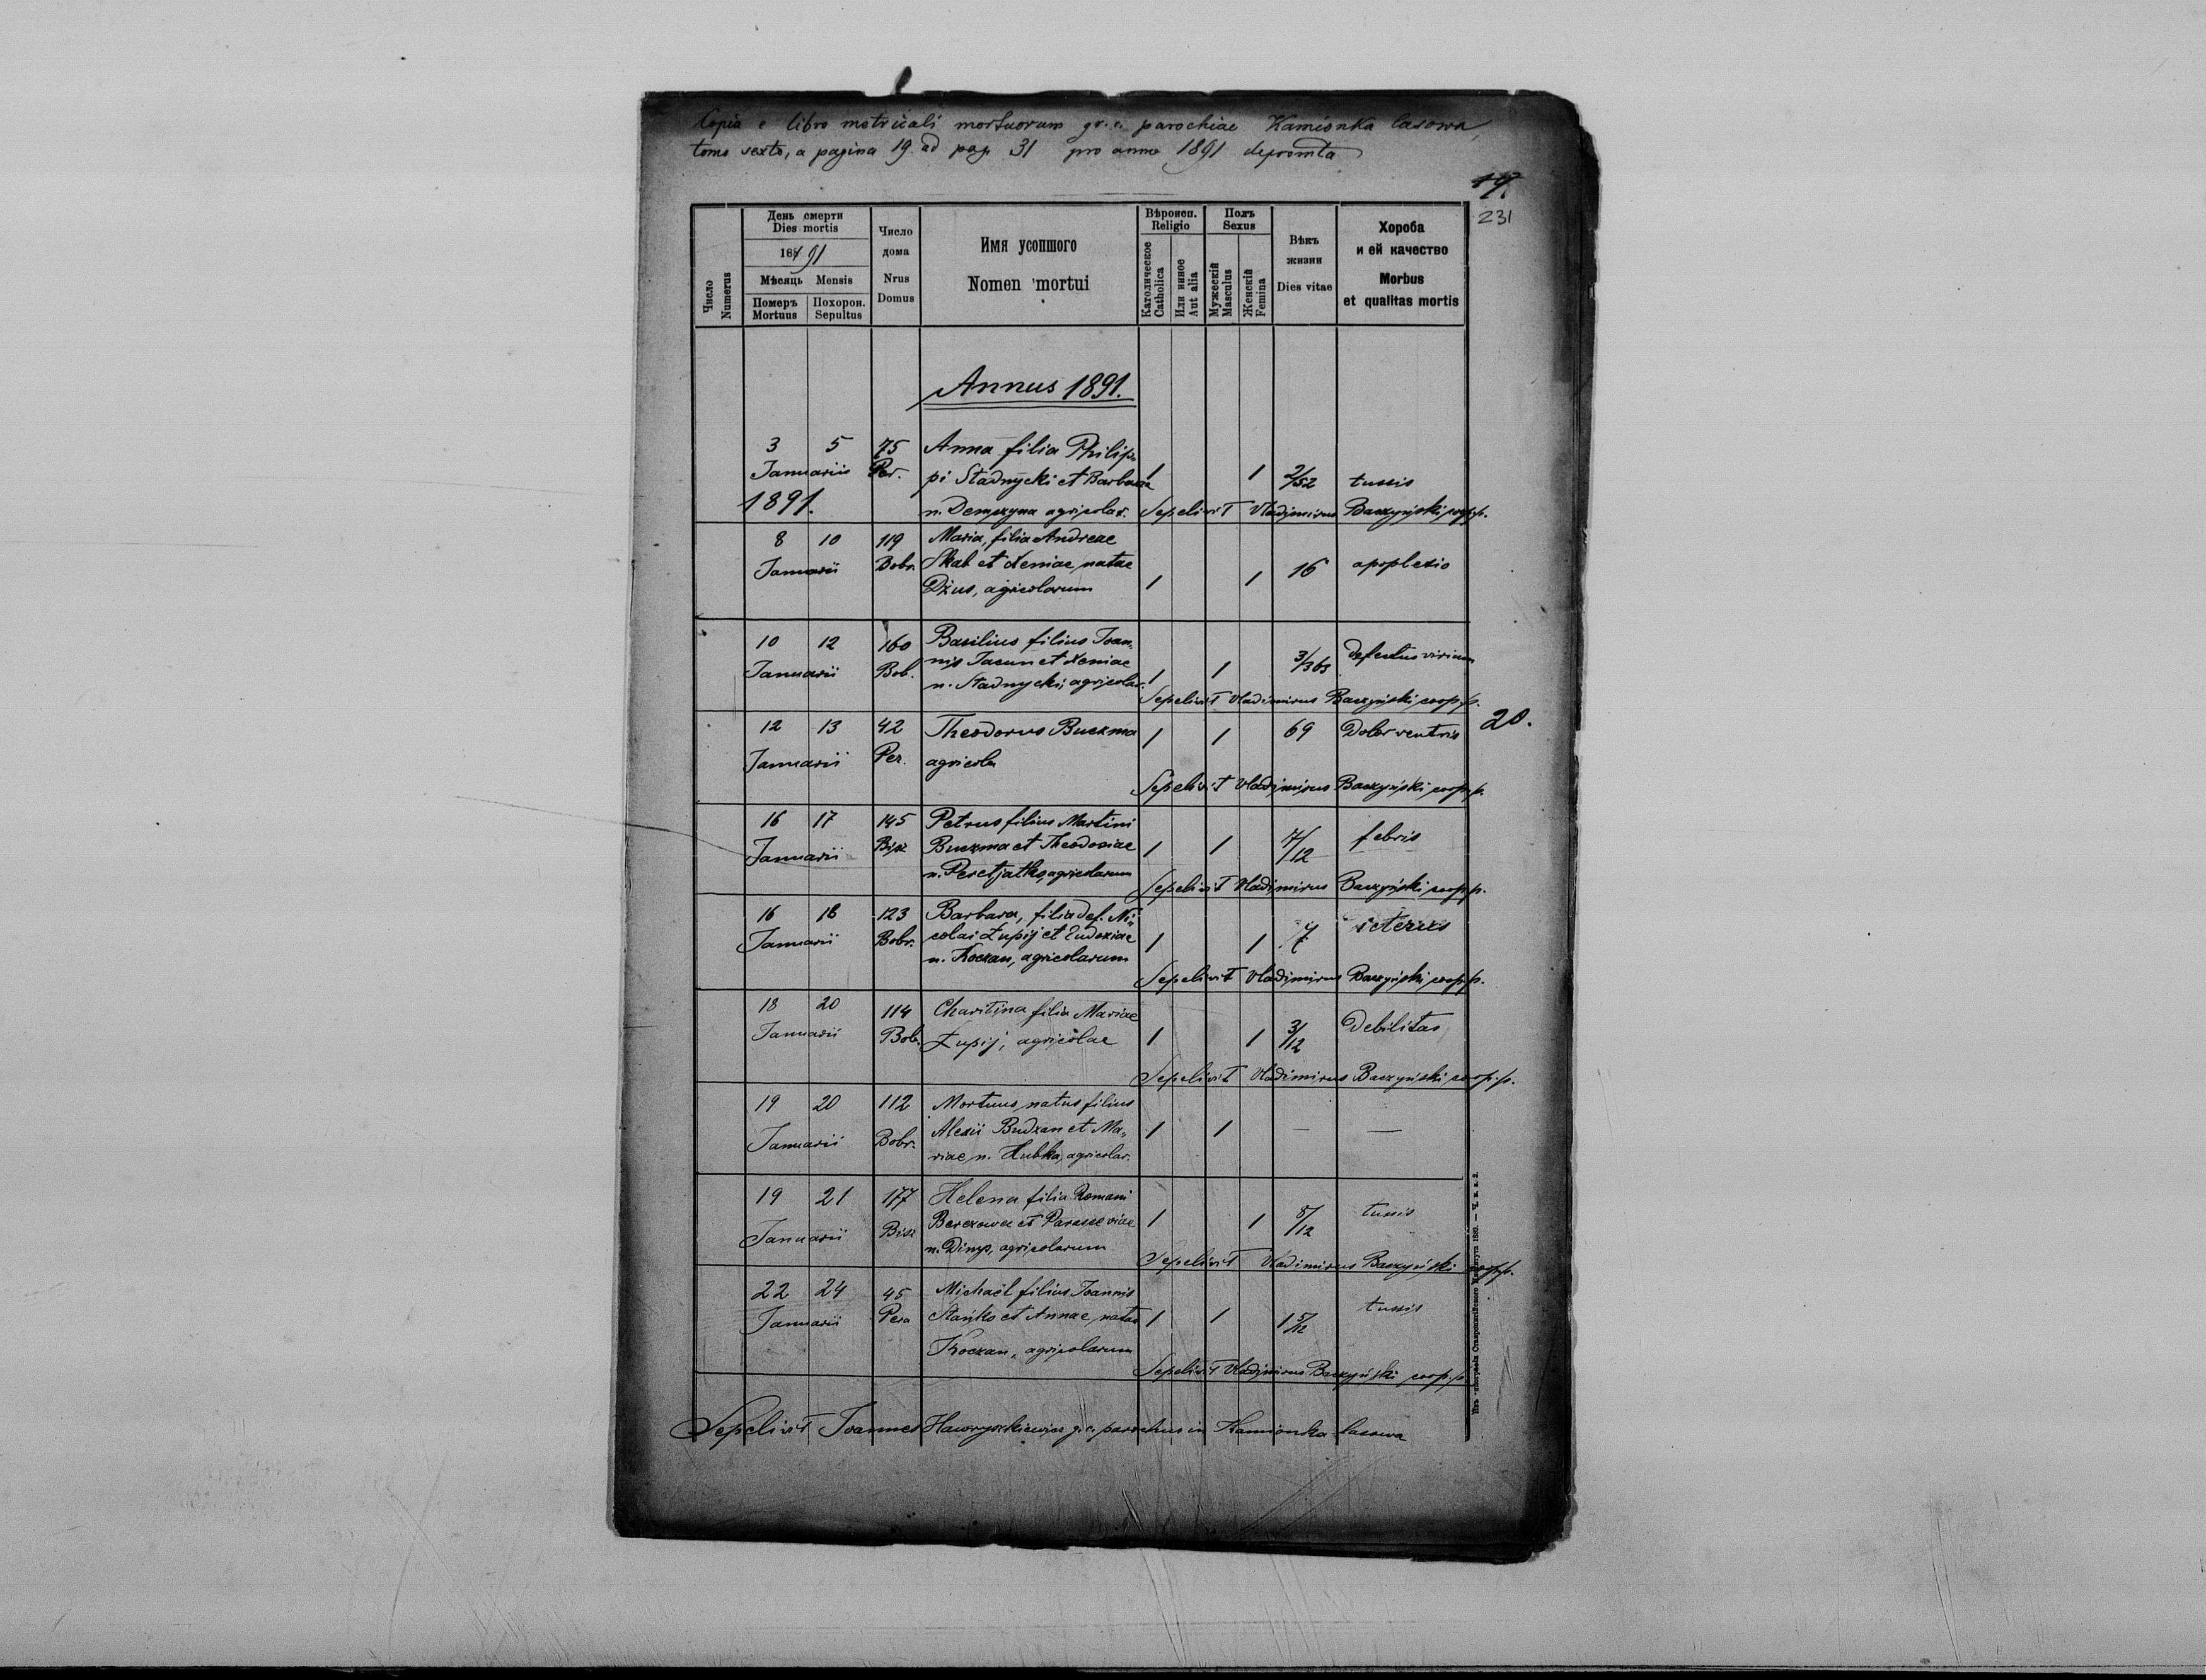 Copia e libro metricali mortuorum gr. c. parochiae Kamionka lasowa,
tomo sexto, a pagina 19. ad pag. 31 pro anno 1891 depromta
19.
231
Число
Numerus
День смерти
Dies mortis
1891
Мѣсяць Mensis
Померъ
Mortuus
Похорон.
Sepultus
Число
дома
Nrus
Domus
Имя усопшого
Nomen mortui
Вѣроисп.
Religio
Католическое
Catholica
Или инное
Aut alia
Полъ
Sexus
Мужескій
Masculus
Женскій
Femina
Вѣкъ
жизни
Dies vitae
Хороба
и ей качество
Morbus
et qualitas mortis
Annus 1891.
3 5 75 Anna filia Philip-
Januarii Per. pi Stadnycki et Barbarae 1 1 2/52 tussis
1891. n. agricolar. Sepelivit Vladimirus Baczyński coop. p.
8 10 119 Maria, filia Andreae
Januarii Bobr. Skab et Xeniae, natae 16 apoplexio
Dżus, agricolarum 1 1
10 12 160 Basilius filius Joan„
Januarii Bob. nis Jacun et Xeniae 1 1 3/365 defectus virium
n. Stadnycki, agricolar.
Sepelivit Vladimirus Baczyński coop. p.
12 13 42 Theodorus Buczma 1 1 69 Dolor ventris
20.
Januarii Per. agricola
Sepelivit Vladimirus Baczyński coop. p.
16 17 145 Petrus filius Martini
Januarii Bisz Buczma et Theodosiae 1 1 7/12 febris
n. Peretjatko, agricolarum
Sepelivit Vladimirus Baczyński coop. p.
16 18 123 Barbara, filia def. Ni„
Januarii Bobr. colai Łupij et Eudoxiae 1 1 7 icterus
n. Koczan, agricolarum
Sepelivit Vladimirus Baczyński coop. p.
18 20 114 Charitina filia Mariae
Januarii Bob. Łupij, agricolae 1 1 3/12 Debilitas
Sepelivit Vladimirus Baczyński coop. p.
19 20 112 Mortuus natus filius
Januarii Bobr. Alexii Budzan et Ma„ 1 1 — —
riae, n. Hubka, agricolar.
19 21 177 Helena filia Romani
Januarii Bisz et Parasceviae 1 1 8/12 tussis
n. agricolarum
Sepelivit Vladimirus Baczyński coop. p.
22 24 45 Michaël filius Joannis
Januarii Stańko et Annae, natae 1 1 1 5/12 tussis
Koczan, agricolarum
Sepelivit Vladimirus Baczyński coop. p.
Sepelivit Joannes Hawryszkiewicz g. c. parochus in Kamionka lasowa